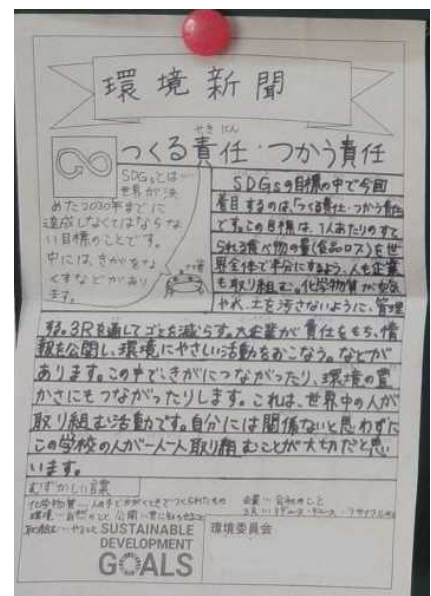 環境新聞
せきにん
つくる責任・つかう責任
SDGsとは…
世界が決
めた2030年までに
達成しなくてはならな
い目標のことです。
中には、きがをな
くすなどがあり
ます。
SDGsの目標の中で今回
着目するのは、「つくる責任・つかう責任
です。この目標は、1人あたりのすて
られる食べ物の量(食品ロス)を世
界全体で半分にするよう、人も企業
も取り組む。化学物質が空気
や水、土を汚さないように、管理
する。3Rを通してゴミを減らす。大企業が責任をもち、情
報を公開し、環境にやさしい活動をおこなう。などが
あります。この中で、きがにつながったり、環境の豊
かさにもつながったりします。これは、世界中の人が
取り組む活動です。自分には関係ないと思わずに
この学校の人が一人一人取り組むことが大切だと思
います。
むずかしい言葉
化学物質…
企業…会社のこと
環境…自然のこと
3R…リデュース・リユース・リサイクル
SUSTAINABLE
DEVELOPMENT
GOALS
環境委員会